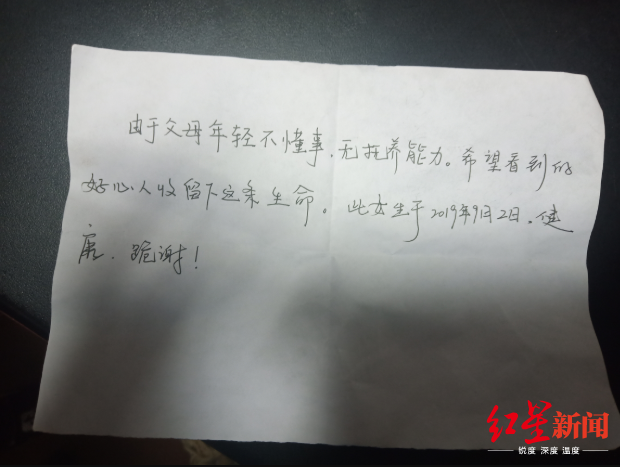 由于父母年轻不懂事,无抚养能力。希望看到的
好心人收留下这条生命。此女生于2019年9月2日,健
康,跪谢!
红星新闻
锐度 深度 温度